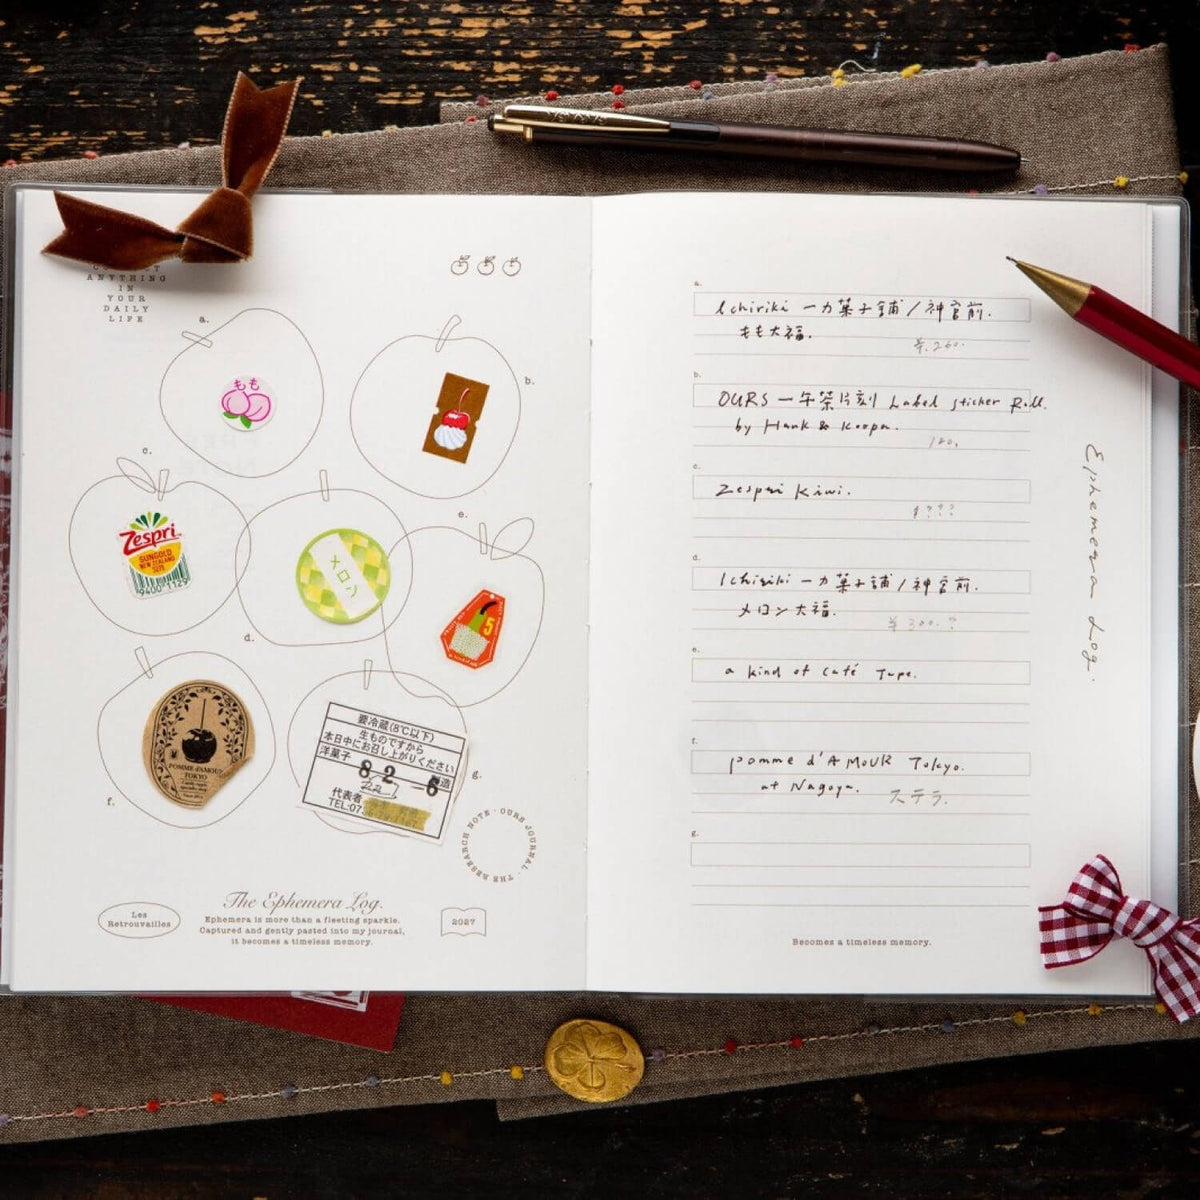 ANYTHING
IN
YOUR
DAILY
LIFE
a.
もも
b.
c.
Zespri
SUNGOLD
NEW ZEALAND
9400 1129
d.
メロン
e.
5
f.
POMME-d'AMOUR
TOKYO
g.
要冷蔵(8℃以下)
生ものですから
本日中にお召し上がりください
洋菓子
82 -6
造
代表者
TEL:07
THE RESEARCH NOTE · OURS JOURNAL ·
Les
Retrouvailles
The Ephemera Log.
Ephemera is more than a fleeting sparkle.
Captured and gently pasted into my journal,
it becomes a timeless memory.
2027
a.
Ichiriki 一力菓子舗/神宮前.
もも大福.
¥.260.
b.
OURS 一午茶片刻 Label sticker Roll.
by Hank & Koopa.
180.
c.
Zespri Kiwi.
$????
d.
Ichiriki 一力菓子舗/神宮前.
メロン大福.
¥300.?
e.
a kind of café Tape.
f.
pomme d'AMOUR Tokyo.
at Nagoya.
ステラ.
g.
Ephemera Log.
Becomes a timeless memory.